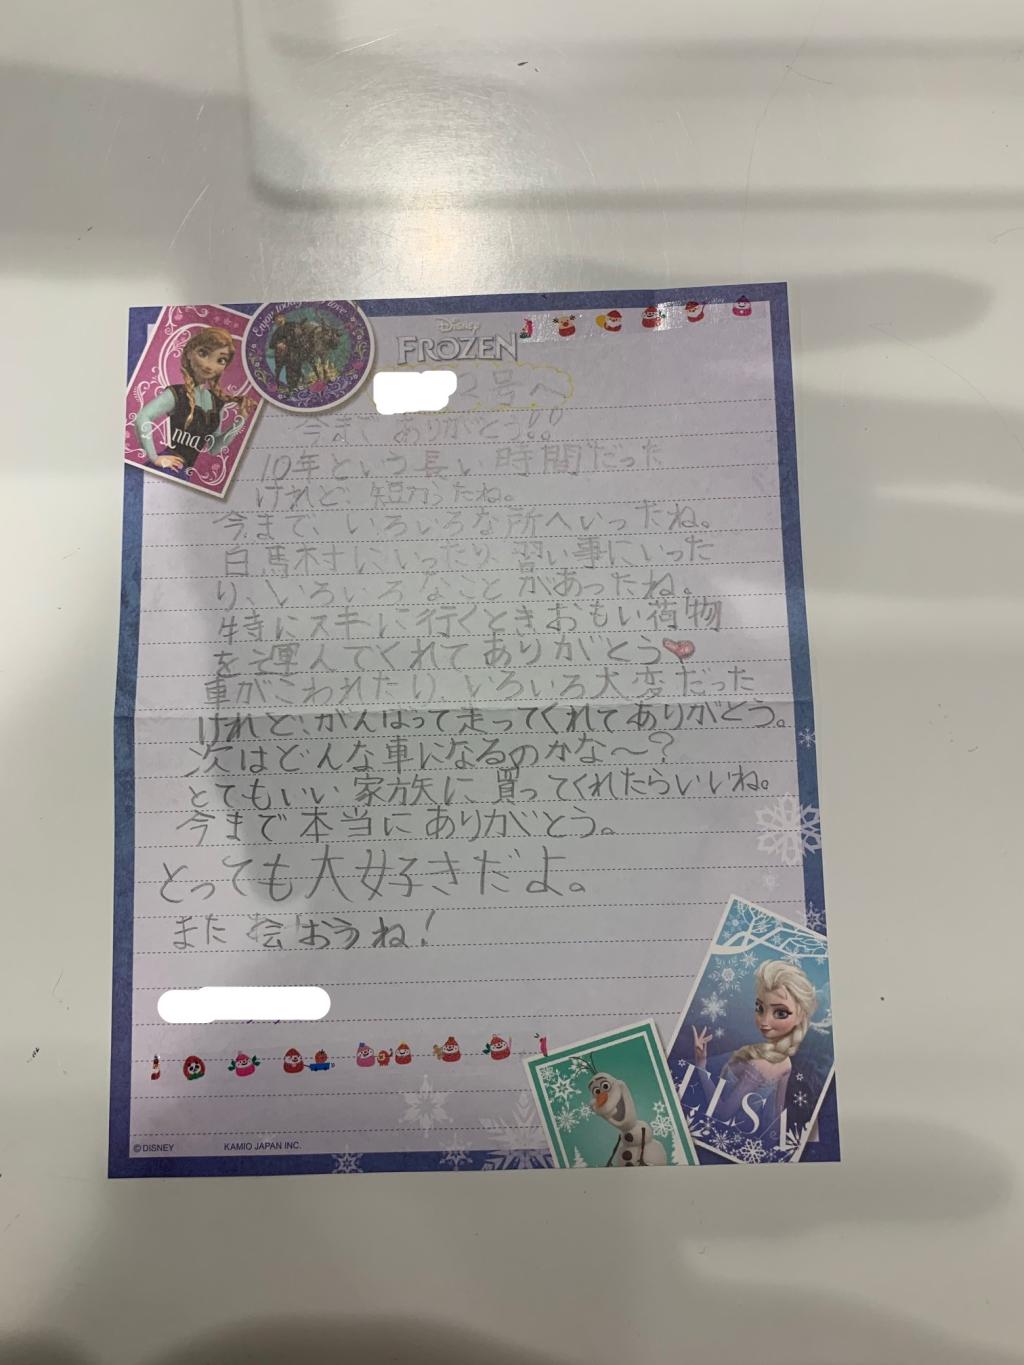 Enjoy
Disney
FROZEN
Anna
2号へ
今までありがとう!!
10年という長い時間だった
けれど、短かったね。
今まで、いろいろな所へいったね。
白馬村にいったり、習い事にいった
り、いろいろなことがあったね。
特にスキーに行くときおもい荷物
を運んでくれてありがとう
車がこわれたり、いろいろ大変だった
けれど、がんばって走ってくれてありがとう。
次はどんな車になるのかな〜?
とてもいい家族に、買ってくれたらいいね。
今まで本当にありがとう。
とっても大好きだよ。
また会おうね!
ELSA
©DISNEY
KAMIO JAPAN INC.